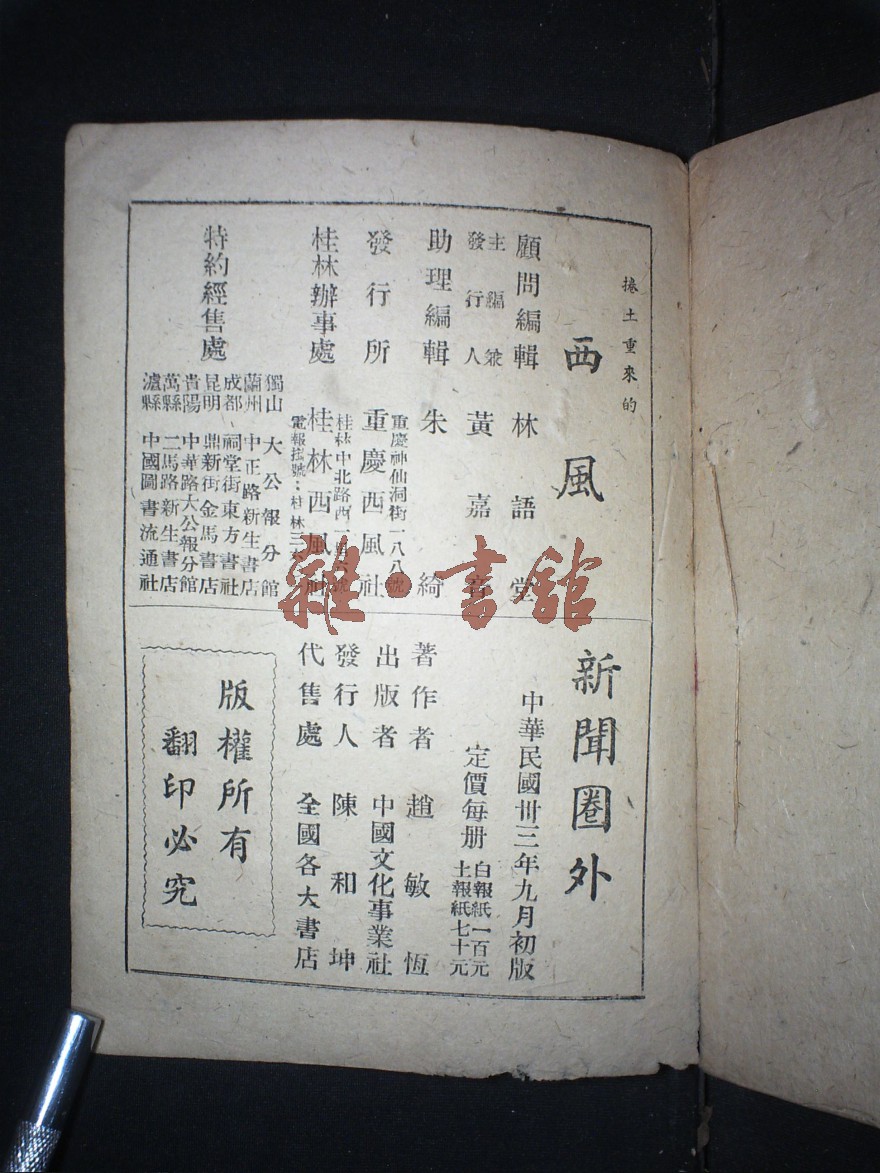 捲土重來的
西風
顧問編輯 林語堂
主編兼
發行人 黃嘉音
助理編輯 朱綺
重慶神仙洞街一八八號
發行所 重慶西風社
桂林中北路西一
桂林辦事處 桂林西風社
電報掛號：桂林三
特約經售處
獨山 大公報分館
蘭州 中正路新生書店
成都 祠堂街東方書社
昆明 鼎新街金馬書店
貴陽 中華路大公報分館
萬縣 二馬路新生書店
瀘縣 中國圖書流通社
新聞圈外
中華民國卅三年九月初版
定價每册 白報紙一百元
土報紙七十元
著作者 趙敏恆
出版者 中國文化事業社
發行人 陳和坤
代售處 全國各大書店
版權所有
翻印必究
雜·書館